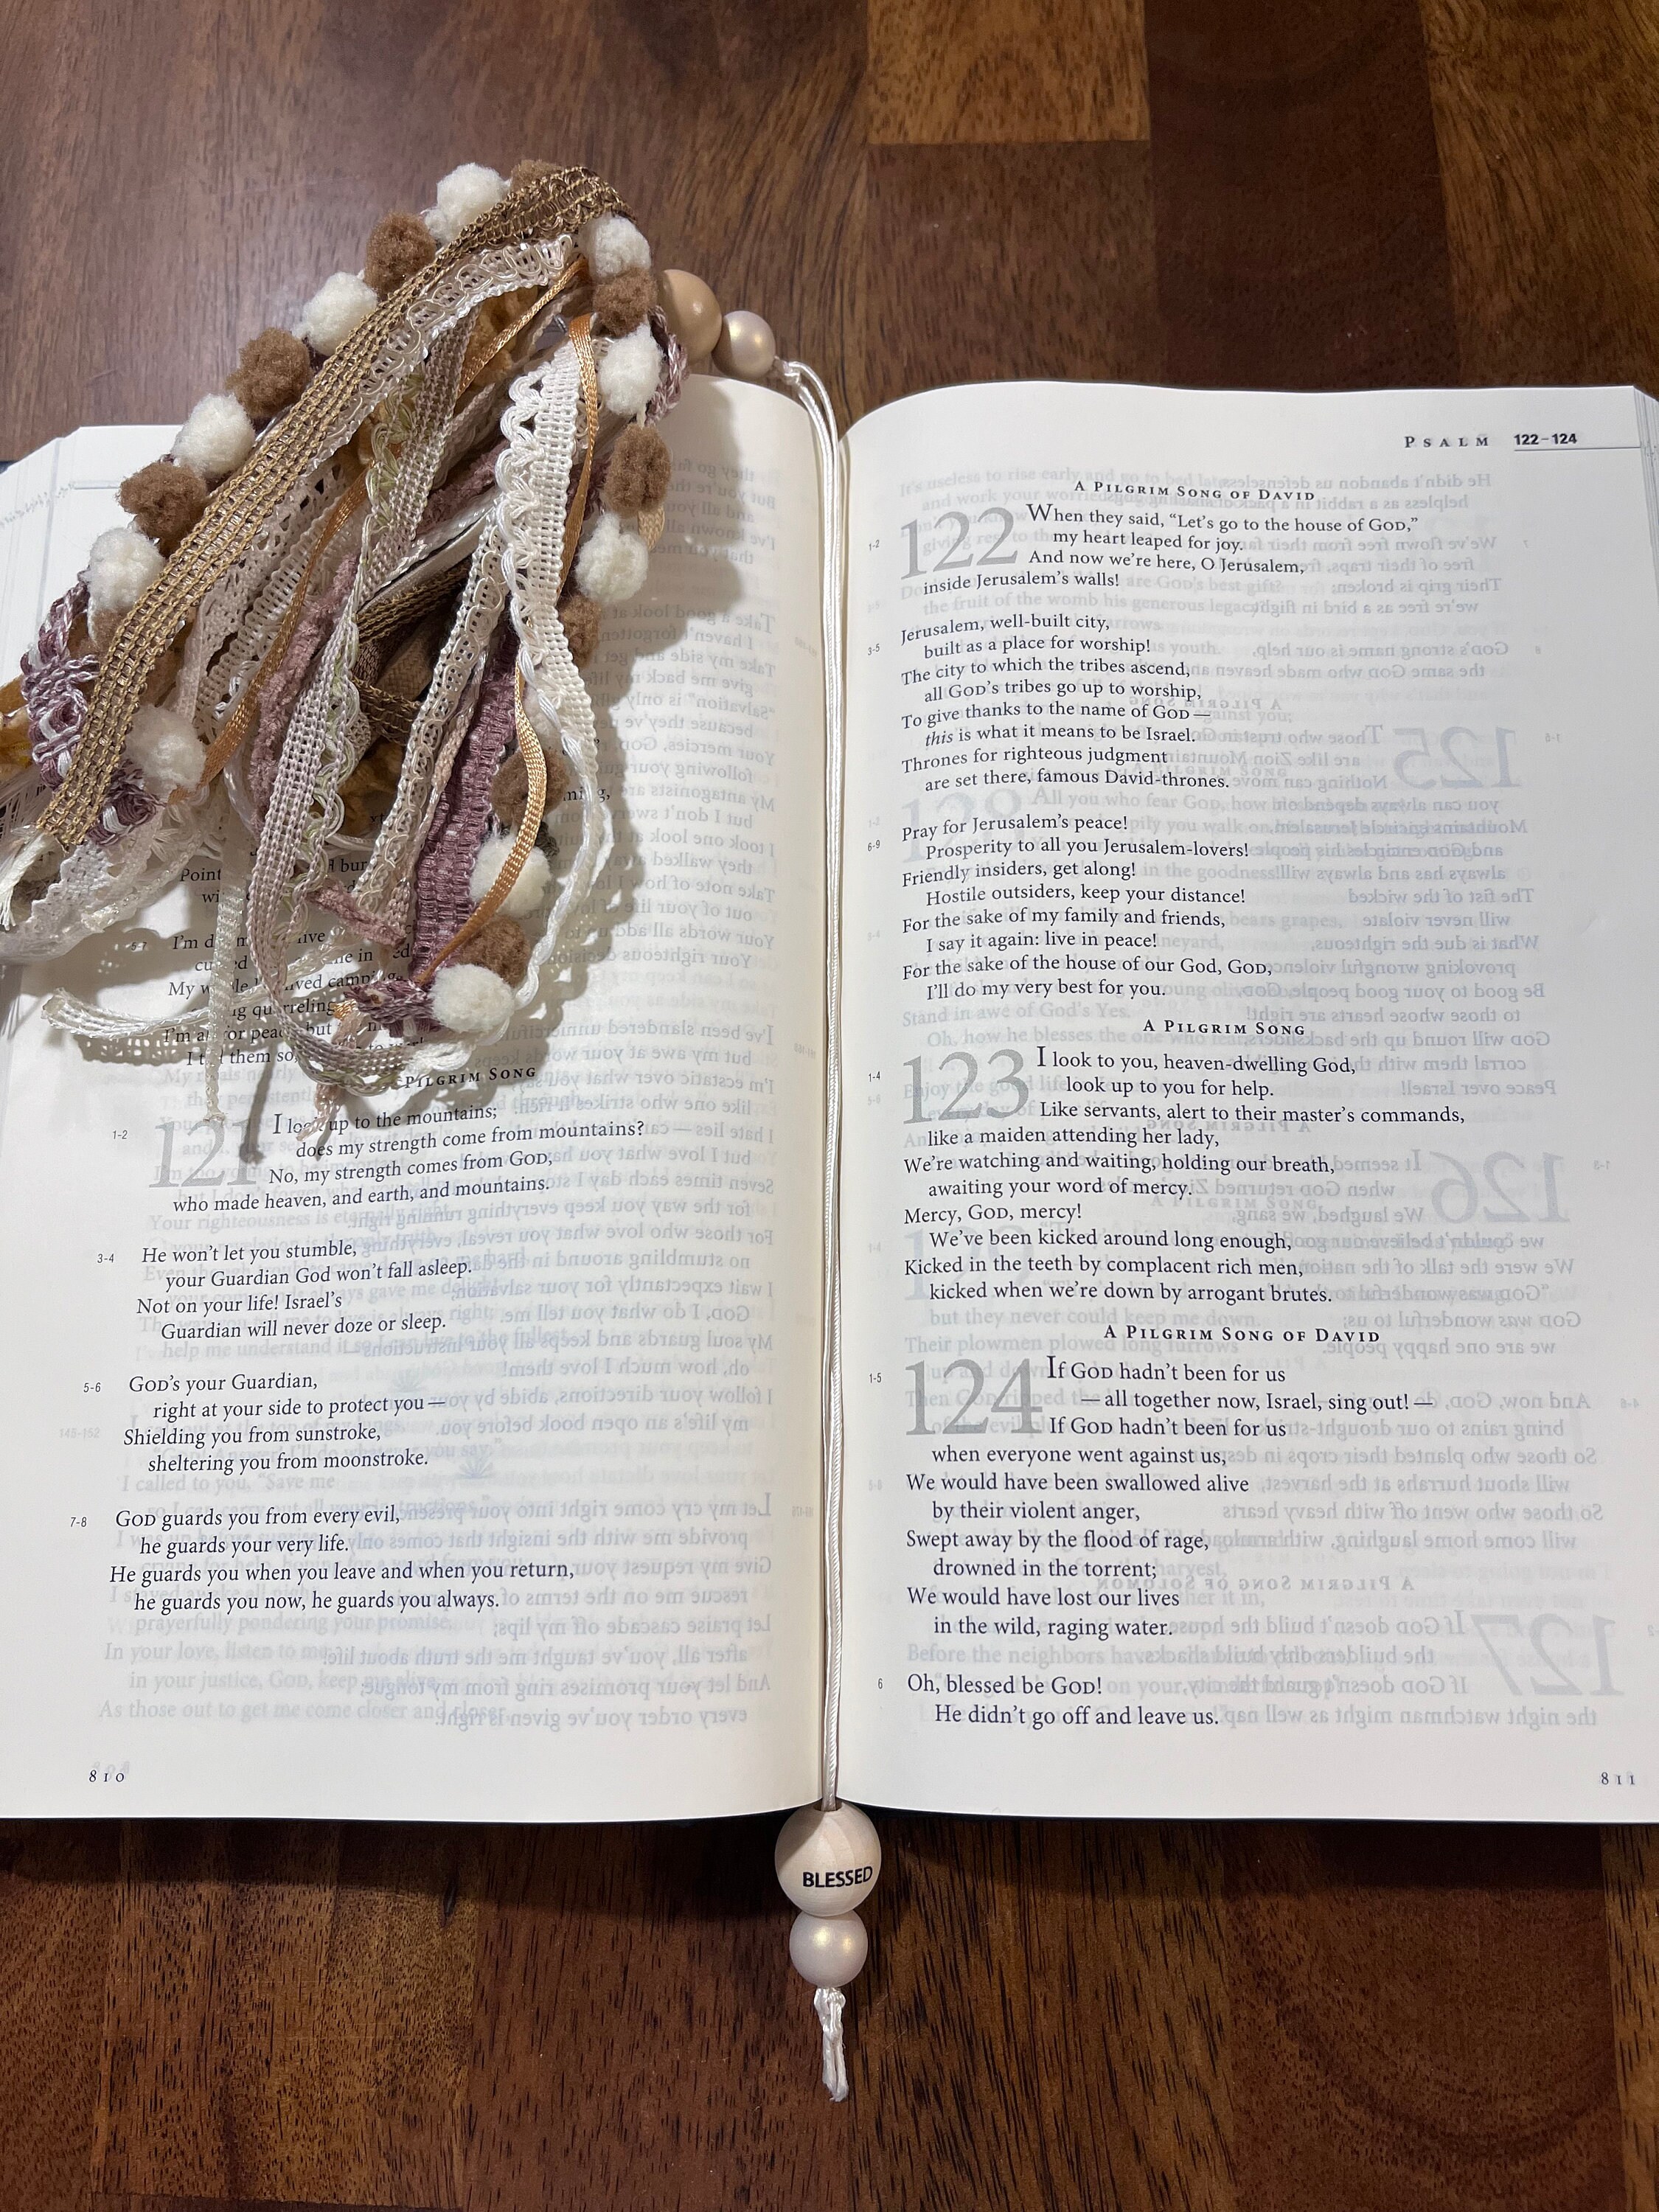 Point
I'm d
My w
I'm a
PILGRIM SONG
1-2
121
I look up to the mountains;
does my strength come from mountains?
No, my strength comes from GOD,
who made heaven, and earth, and mountains.
3-4
He won't let you stumble,
your Guardian God won't fall asleep.
Not on your life! Israel's
Guardian will never doze or sleep.
5-6
GOD's your Guardian,
right at your side to protect you —
Shielding you from sunstroke,
sheltering you from moonstroke.
7-8
GOD guards you from every evil,
he guards your very life.
He guards you when you leave and when you return,
he guards you now, he guards you always.
810
PSALM 122–124
A PILGRIM SONG OF DAVID
122
1-2
When they said, “Let's go to the house of GOD,”
my heart leaped for joy.
And now we're here, O Jerusalem,
inside Jerusalem's walls!
3-5
Jerusalem, well-built city,
built as a place for worship!
The city to which the tribes ascend,
all GOD's tribes go up to worship,
To give thanks to the name of GOD —
this is what it means to be Israel.
Thrones for righteous judgment
are set there, famous David-thrones.
6-9
Pray for Jerusalem's peace!
Prosperity to all you Jerusalem-lovers!
Friendly insiders, get along!
Hostile outsiders, keep your distance!
For the sake of my family and friends,
I say it again: live in peace!
For the sake of the house of our God, GOD,
I'll do my very best for you.
A PILGRIM SONG
123
1-4
I look to you, heaven-dwelling God,
look up to you for help.
Like servants, alert to their master's commands,
like a maiden attending her lady,
We're watching and waiting, holding our breath,
awaiting your word of mercy.
Mercy, GOD, mercy!
We've been kicked around long enough,
Kicked in the teeth by complacent rich men,
kicked when we're down by arrogant brutes.
A PILGRIM SONG OF DAVID
124
1-5
If GOD hadn't been for us
— all together now, Israel, sing out! —
If GOD hadn't been for us
when everyone went against us,
We would have been swallowed alive
by their violent anger,
Swept away by the flood of rage,
drowned in the torrent;
We would have lost our lives
in the wild, raging water.
6
Oh, blessed be GOD!
He didn't go off and leave us.
811
BLESSED